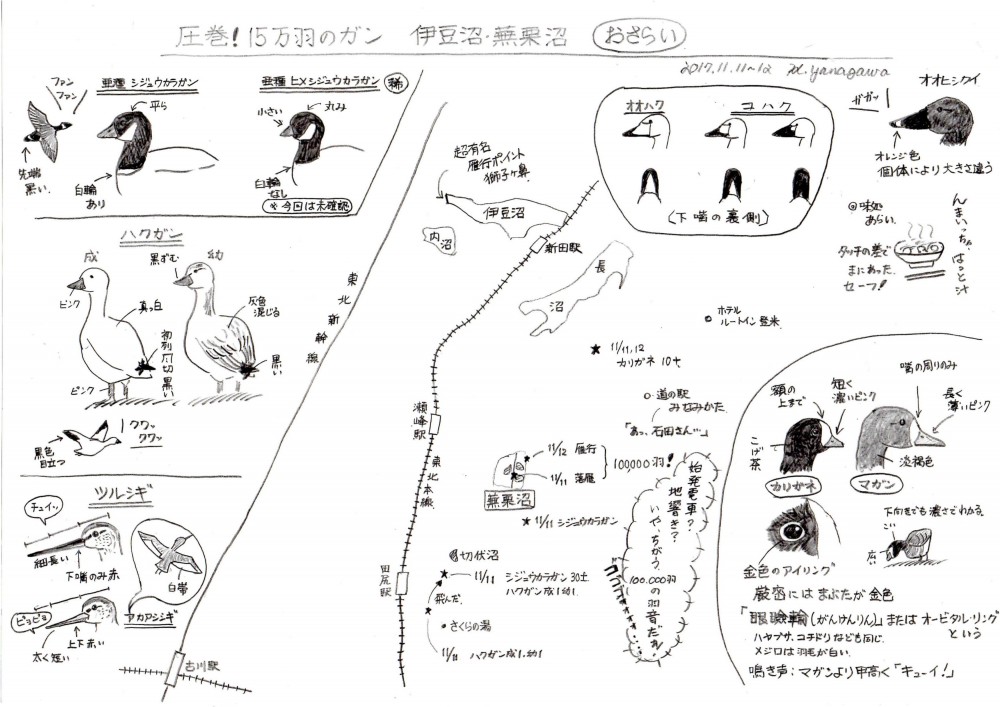 圧巻!15万羽のガン 伊豆沼・蕪栗沼 おさらい
2017.11.11~12 M.yanagawa
ファン
ファン
亜種 シジュウカラガン
平ら
先端
黒い.
白輪
あり
亜種 ヒメシジュウカラガン
稀
小さい
丸み
白輪
なし
※今回は未確認
ハクガン
成
黒ずむ
幼
ピンク
真っ白
灰色
混じる
初列风切黒い
黒い
ピンク
クワッ
クワッ
黒色
目立つ
ツルシギ
チュイッ
細長い
下嘴のみ赤
白帯
ピョピョ
アカアシシギ
上下赤い
太く短い
古川駅
東北新幹線
超有名
雁行ポイント
獅子ヶ鼻
伊豆沼
内沼
新田駅
長
沼
ホテル
ルートイン登米
11/11,12
カリガネ 10+
道の駅
みなみかた
「あっ、石田さん…」
瀬峰駅
東北本線
11/12 雁行
11/11 落雁
100000羽!
蕪栗沼
11/11 シジュウカラガン
始発電車?
地響き?
いや、ちがう、
100.000羽
の羽音だれ!
ゴゴゴゴ・・・
切伏沼
11/11 シジュウカラガン30±
ハクガン成1幼1
飛んだ.
さくらの湯
11/11 ハクガン成1.幼1
田尻駅
オオハク
コハク
(下嘴の裏側)
オオヒシクイ
ガガッ
オレンジ色
個体により大きさ違う
◎味処
あらい.
タッチの差で
まにあった.
セーフ!
んまいっちゃ、はっと汁
嘴の周りのみ
額の
上まで
短く
濃いピンク
長く
薄いピンク
こげ茶
淡褐色
カリガネ
マガン
下向きでも濃さでわかる.
こい
うすい
金色のアイリング
厳密にはまぶたが金色
「眼瞼輪(がんけんりん)」または オービタル・リング
という
ハヤブサ、コチドリなども同じ.
メジロは羽毛が白い.
鳴き声:マガンより甲高く「キューイ!」